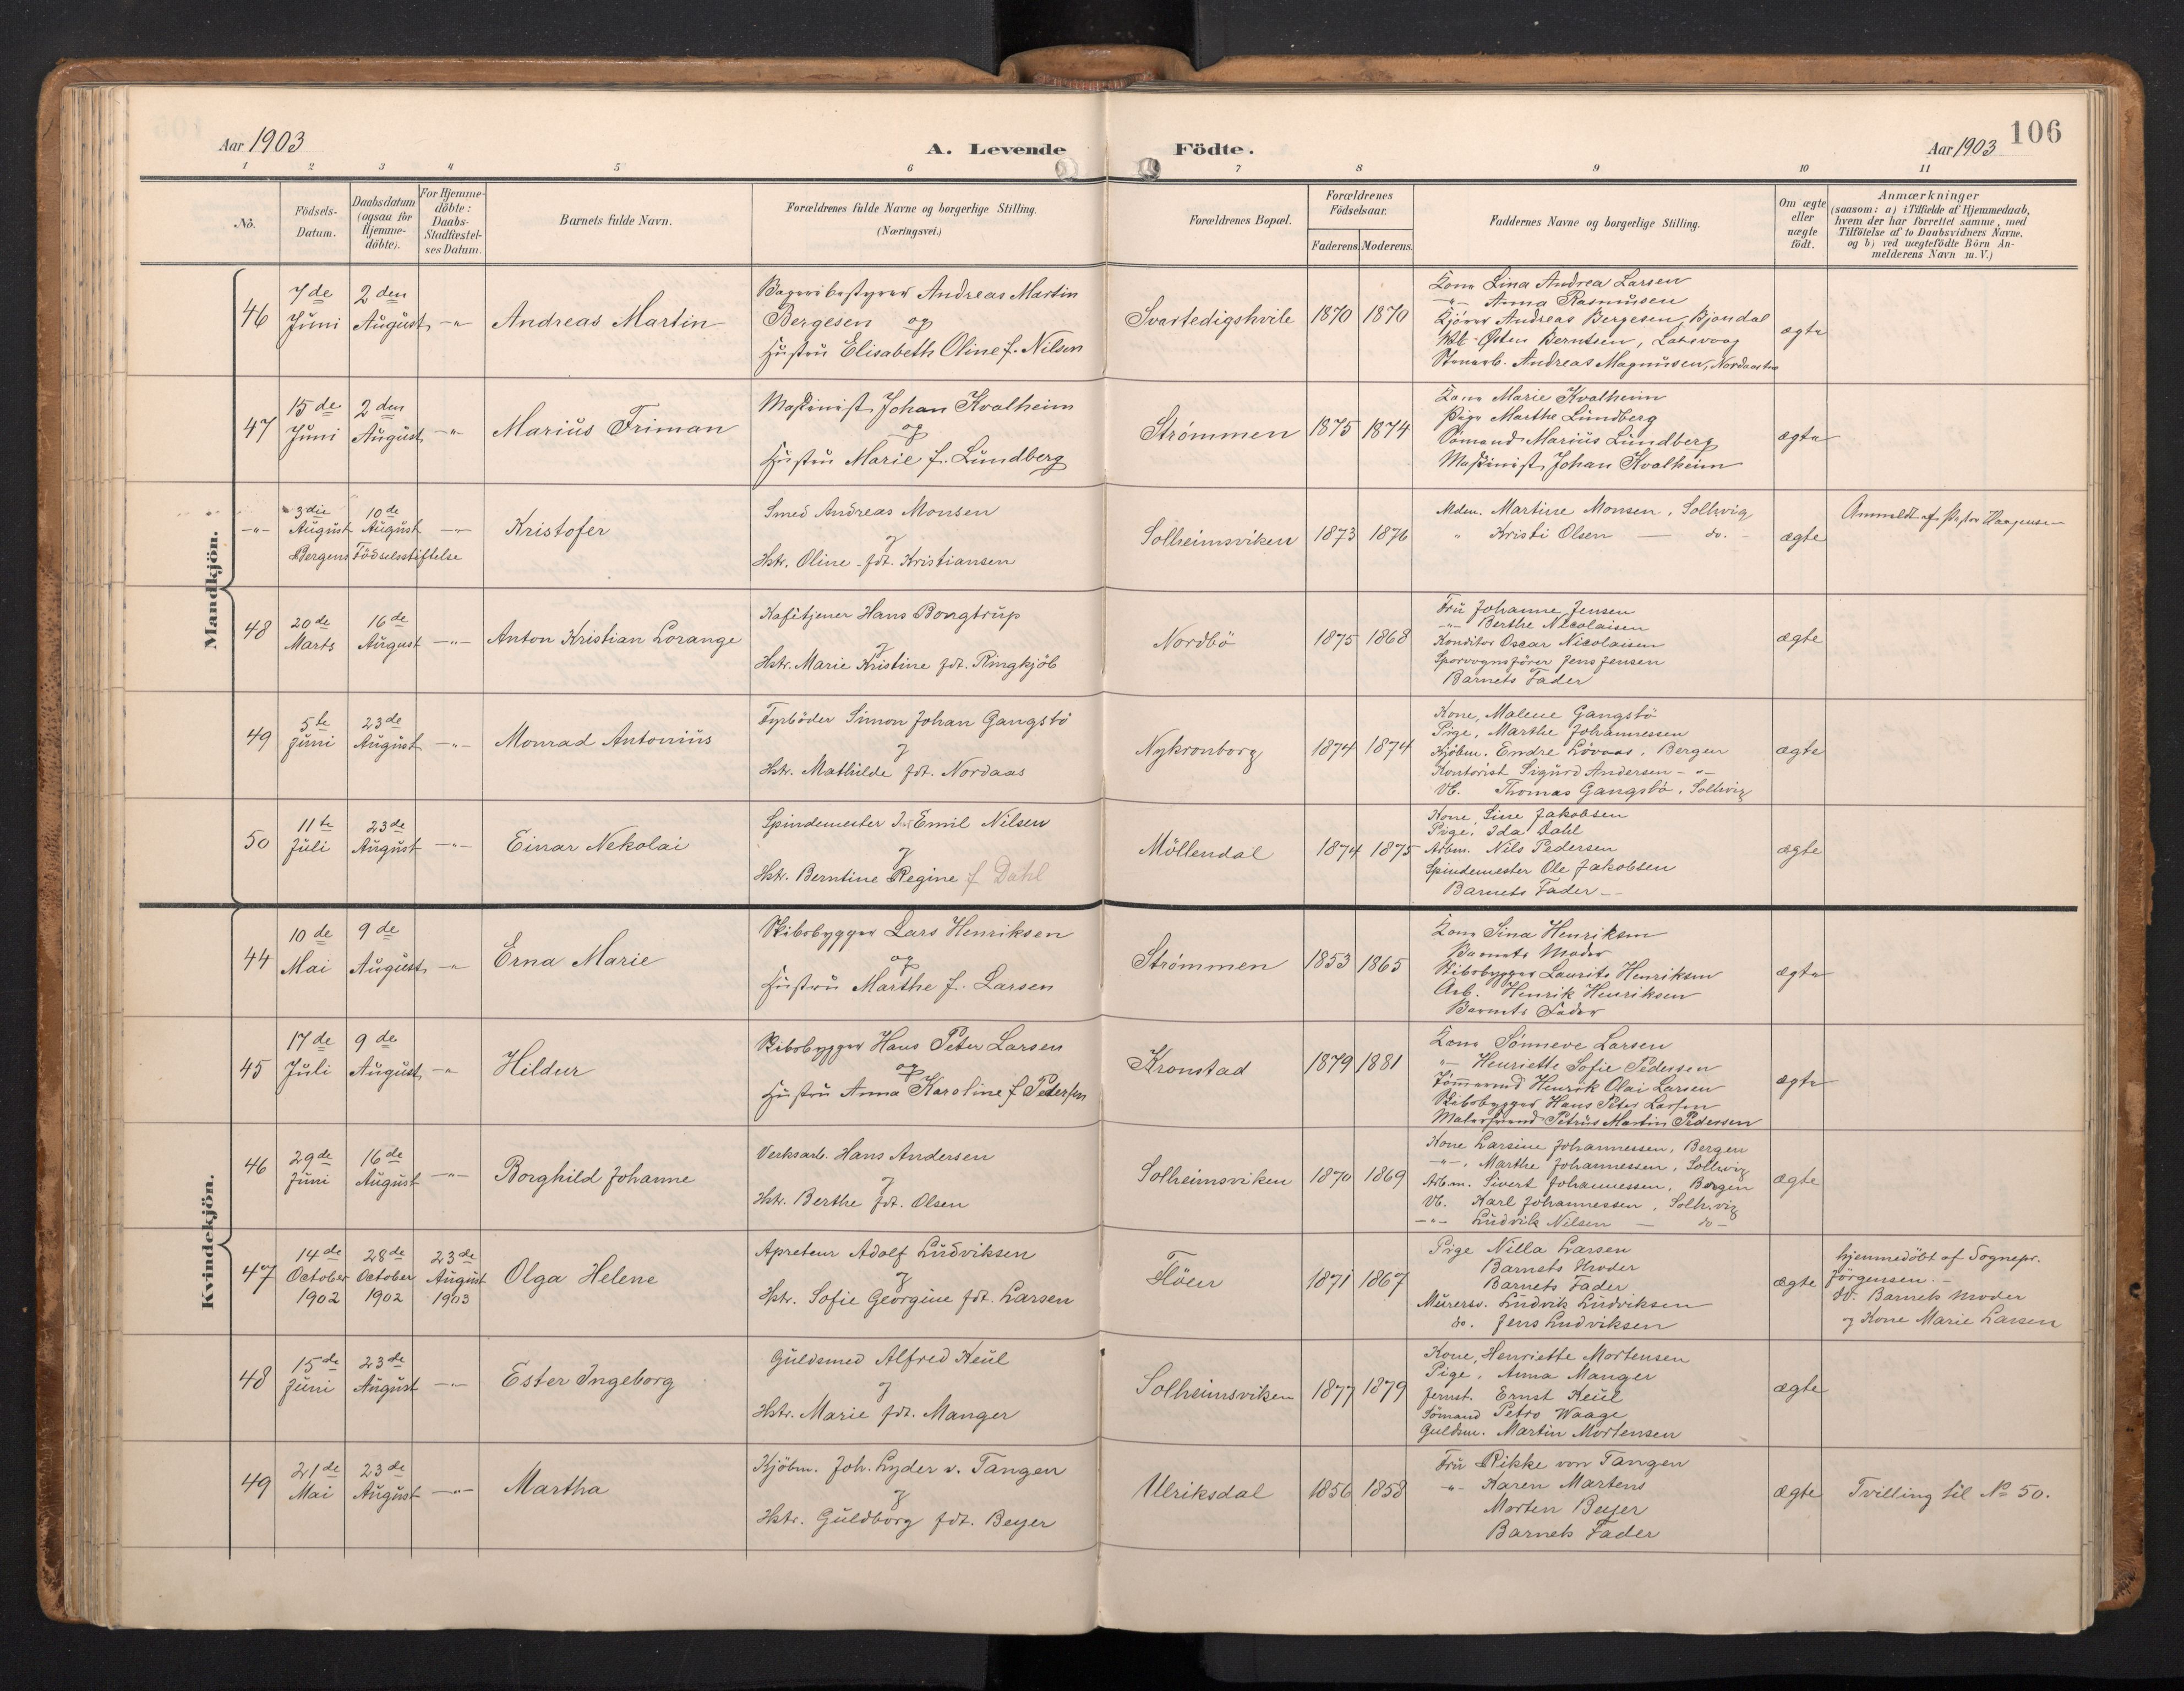 106
Aar 1903
A. Levende Födte.
Aar 1903
1 2 3 4 5 6 7 8 9 10 11
No.
Födsels-
Datum.
Daabsdatum
(ogsaa for
Hjemme-
döbte).
For Hjemme-
döbte:
Daabs-
Stadfæstel-
ses Datum.
Barnets fulde Navn.
Forældrenes fulde Navne og borgerlige Stilling.
(Næringsvei.)
Forældrenes Bopæl.
Forældrenes
Födselsaar.
Faderens. Moderens.
Faddernes Navne og borgerlige Stilling.
Om ægte
eller
uægte
födt.
Anmærkninger
(saasom: a) i Tilfælde af Hjemmedaab,
hvem der har forrettet samme, med
Tilföielse af to Daabsvidners Navne.
og b) ved uægtefödte Börn An-
melderens Navn m. V.)
Mandkjön.
46
7de
Juni
2den
August
-"-
Andreas Martin
Bageribestyrer Andreas Martin
Bergesen og
Hustru Elisabeth Oline f. Nilsen
Svartedigshvile
1870 1870
Kone Lina Andrea Larsen
-"- Anna Rasmusen
Kjörer Andreas Bergesen, Bjøndal
Østen Berntsen, Laksevaag
Stenarb. Andreas Magnussen,
ægte
47
15de
Juni
2den
August
-"-
Marius Friman
Maskinist Johan Kvalheim
og
Hustru Marie f. Lundberg
Strømmen
1875 1874
Kone Marie Kvalheim
Pige Marthe Lundberg
Sømand Marius Lundberg
Maskinist Johan Kvalheim
ægte
-"-
3die
August
10de
August
-"-
Bergens Födselsstiftelse
Kristofer
Smed Andreas Monsen
&
Hstr. Oline fdt. Kristiansen
Solheimsviken
1873 1876
Mdm. Martine Monsen, Solhvig
" Kristi Olsen — do. -
ægte
Anmeldt af Pastor Haagensen
48
20de
Marts
16de
August
-"-
Anton Kristian Lorange
Kafétjener Hans Bongtrup
&
Hstr. Marie Kristine fdt. Ringkjöb
Nordbö
1875 1868
Fru Johanne Jensen
-"- Berthe Nicolaisen
Konditor Oscar Nicolaisen
Sporvognsfører Jens Jensen
Barnets Fader
ægte
49
5te
Juni
23de
August
-"-
Monrad Antonius
Fyrböder Simon Johan Gangstö
&
Hstr. Mathilde fdt. Nordaas
Nykronborg
1874 1874
Kone, Malene Gangstö
Pige, Marthe Johannessen
Kjöbm. Endre Lövaas, Bergen
Kontorist Sigurd Andersen -"-
Vb. Thomas Gangstö, Solhvig
ægte
50
11te
Juli
23de
August
-"-
Einar Nekolai
Spindemester J. Emil Nilsen
&
Hstr. Berntine Regine f Dahl
Möllendal
1874 1875
Kone, Line Jakobsen
Pige, Ida Dahl
Arbm. Nils Pedersen
Spindemester Ole Jakobsen
Barnets Fader -
ægte
Kvindekjön.
44
10de
Mai
9de
August
-"-
Erna Marie
Skibsbygger Lars Henriksen
og
Hustru Marthe f. Larsen
Strømmen
1853 1865
Kone Sina Henriksen
Barnets Moder
Skibsbygger Laurits Henriksen
Arb. Henrik Henriksen
Barnets Fader
ægte
45
17de
Juli
9de
August
-"-
Hildur
Skibsbygger Hans Peter Larsen
og
Hustru Anna Karoline f Pedersen
Kronstad
1879 1881
Kone Sønneve Larsen
"- Henriette Sofie Pedersen
Tömmermd Henrik Olai Larsen
Skibsbygger Hans Peter Larsen
Malersvend Petrus Martin Pedersen
ægte
46
29de
Juni
16de
August
-"-
Borghild Johanne
Verksarb. Hans Andersen
&
Hstr. Berthe fdt. Olsen
Solheimsviken
1870 1869
Kone Larsine Johannessen, Bergen
-"-. Marthe Johannessen, Solhvig
Arbm. Sivert Johannessen, Bergen
Vb. Karl Johannessen, Solhvig
-"- Ludvik Nilsen — do -
ægte
47
14de
October
1902
28de
October
1902
23de
August
1903
Olga Helene
Apreteur Adolf Ludviksen
&
Hstr. Sofie Georgine fdt. Larsen
Flöen
1871 1867
Pige Nilla Larsen
Barnets Moder
Barnets Fader
Murersv. Ludvik Ludviksen
do. Jens Ludviksen
ægte
hjemmedöbt af Sognepr.
Jörgensen. -
dv. Barnets Moder
og Kone Marie Larsen
48
15de
Juni
23de
August
-"-
Ester Ingeborg
Guldsmed Alfred Keul
&
Hstr. Marie fdt. Manger
Solheimsviken
1877 1879
Kone, Henriette Mortensen
Pige, Anna Manger
Jernst. Ernst Keul
Sömand Petro Waage
Guldsm. Martin Mortensen
ægte
49
21de
Mai
23de
August
-"-
Martha
Kjöbm. Joh. Lyder v. Tangen
&
Hstr. Guldborg fdt. Beyer
Ulriksdal
1856 1858
Fru Rikke von Tangen
-"- Karen Martens
Morten Beyer
Barnets Fader
ægte
Tvilling til No 50.